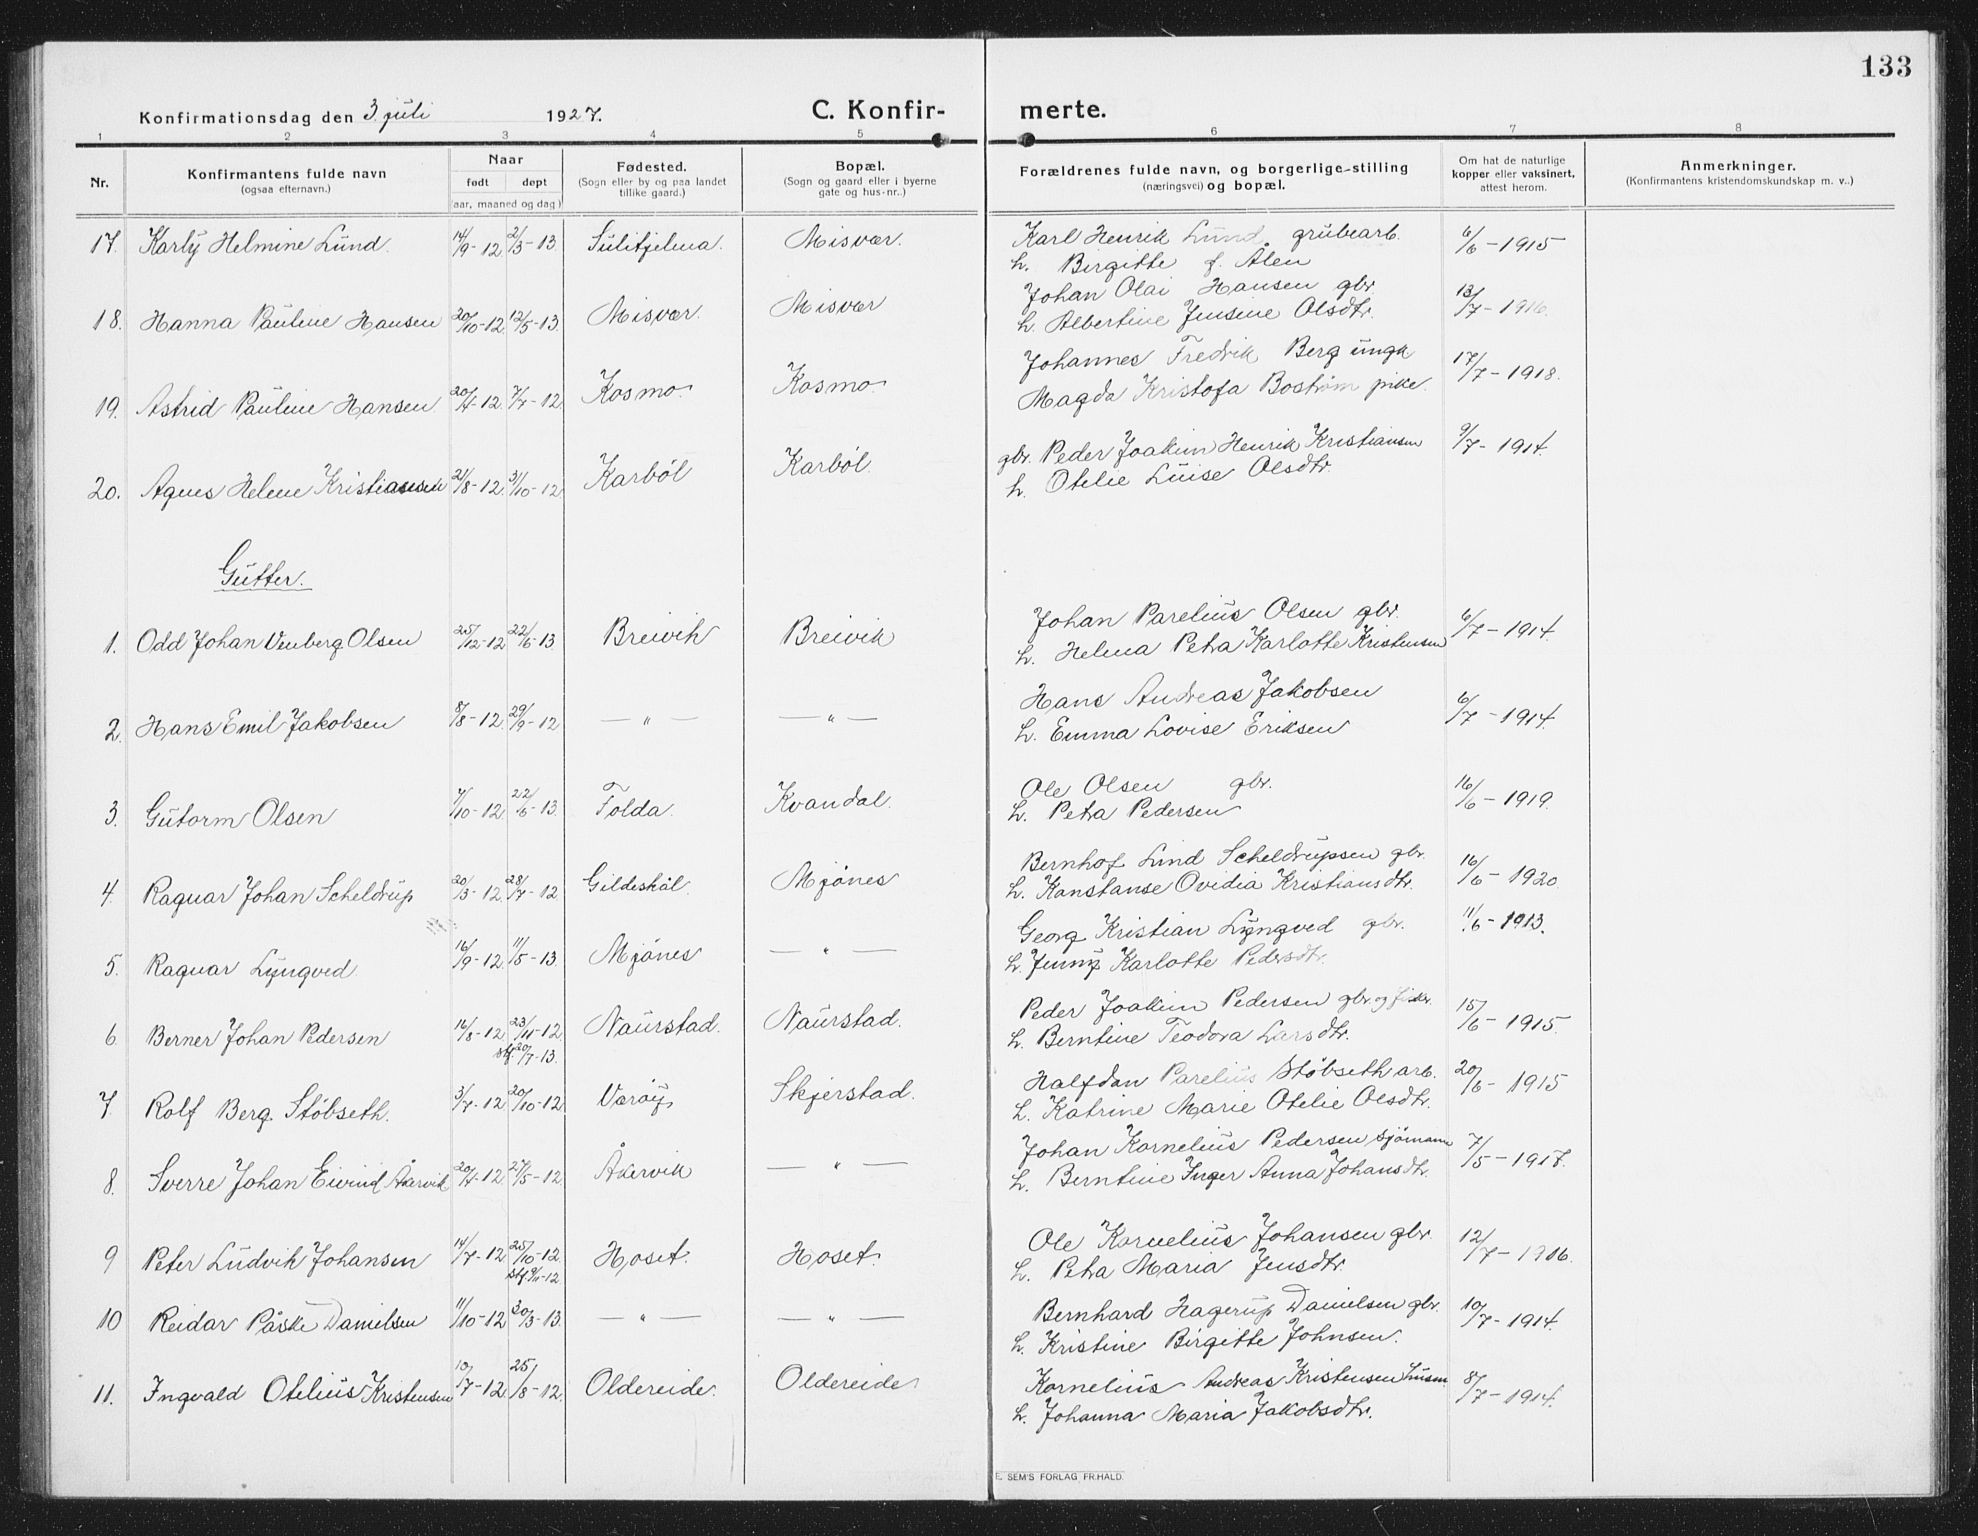 133
Konfirmationsdag den 3. juli 1927. C. Konfir- merte.
1 2 3 4 5 6 7 8
Nr. Konfirmantens fulde navn (ogsaa efternavn.) Naar født døpt (aar, maaned og dag) Fødested. (Sogn eller by og paa landet tillike gaard.) Bopæl. (Sogn og gaard eller i byerne gate og hus-nr.) Forældrenes fulde navn, og borgerlige stilling (næringsvei) og bopæl. Om hat de naturlige kopper eller vaksinert, attest herom. Anmerkninger. (Konfirmantens kristendomskundskap m. v.)
17. Karly Helmine Lund. 14/9-12 2/3-13. Sulitjelma. Misvær. Karl Henrik Lund, grubearb. 6/6-1915
h. Birgitte f. Alen
18. Hanna Pauline Hansen 20/10-12 12/5-13. Misvær. Misvær Johan Olai Hansen gbr. 13/7-1916.
h. Albertine Jensine Olsdtr.
19. Astrid Pauline Hansen 20/4-12 7/7-12. Kosmo. Kosmo. Johannes Fredrik Berg ungk 17/7-1918.
Magda Kristofa Boström pike.
20. Agnes Helene Kristiansen 21/8-12. 3/10-12 Karböl Karböl. gbr. Peder Joakim Henrik Kristiansen 9/7-1914.
h. Otelie Luise Olsdtr.
Gutter.
1. Odd Johan Venberg Olsen 25/12-12 22/6-13. Breivik Breivik Johan Parelius Olsen gbr. 6/7-1914.
h. Helena Petra Karlotte Kristensen
2. Hans Emil Jakobsen 8/8-12. 29/9-12 — " — — " — Hans Andreas Jakobsen 6/7-1914.
h. Emma Lovise Eriksen
3. Gutorm Olsen 7/10-12 22/6-13. Folda. Kvandal. Ole Olsen gbr. 16/6-1919.
h. Petra Pedersen
4. Ragnar Johan Scheldrup 20/3-12. 28/7-12 Gildeskål. Mjönes Bernhof Lind Scheldrupsen gbr. 16/6-1920.
h. Konstanse Ovidia Kristiansdtr.
5. Ragnar Lyngved 16/9-12. 11/5-13 Mjönes — " — Georg Kristian Lyngved gbr. 11/6-1913.
h. Jenny Karlotte Pedersdtr.
6 Berner Johan Pedersen 16/8-12. 23/11-12 Naurstad. Naurstad. Peder Joakim Pedersen gbr. og fisker. 15/6-1915.
stf. 20/7-13. h. Berntine Teodora Larsdtr.
7. Rolf Berg Stöbseth. 3/7-12 20/10-12 Væröy Skjerstad. Halfdan Parelius Stöbseth arb. 20/6-1915
h. Katrine Marie Otelie Olsdtr.
8. Sverre Johan Eivind Åkervik 20/4-12 27/5-12 Åkervik — " — Johan Kornelius Pedersen sjömann 7/5-1917.
h. Berntine Inger Anna Johansdtr.
9 Peter Ludvik Johansen 14/7-12 25/10-12. Hoset. Hoset. Ole Kornelius Johansen gbr. 12/7-1916.
stf 9/11-12 h. Petra Maria Jensdtr.
10 Reidar Påske Danielsen 11/10-12 30/3-13. — " — — " — Bernhard Hagerup Danielsen gbr. 10/7-1914.
h. Kristine Birgitte Johnsen.
11. Ingvald Otelius Kristensen 10/7-12. 25/8-12. Oldereide. Oldereide Kornelius Andreas Kristensen husm. 8/7-1914.
h. Johanna Maria Jakobsdtr.
E. SEM'S FORLAG FR.HALD.